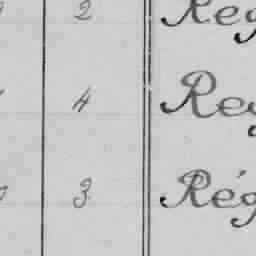 2 Rég
4 Reg
3 Rég